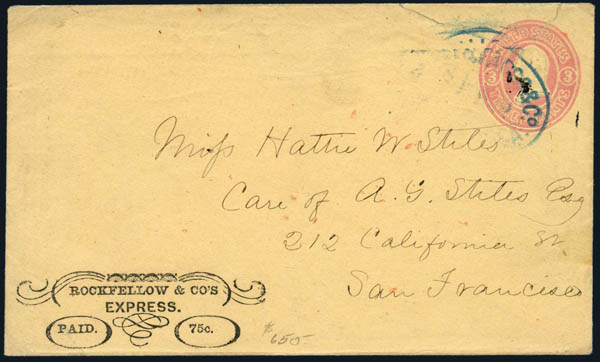 UNITED STATES
3 3
& Co
Miss Hattie W Stiles
Care of A. G. Stiles Esq
212 California St
San Francisco
ROCKFELLOW & CO'S
EXPRESS.
PAID. 75c.
$650-